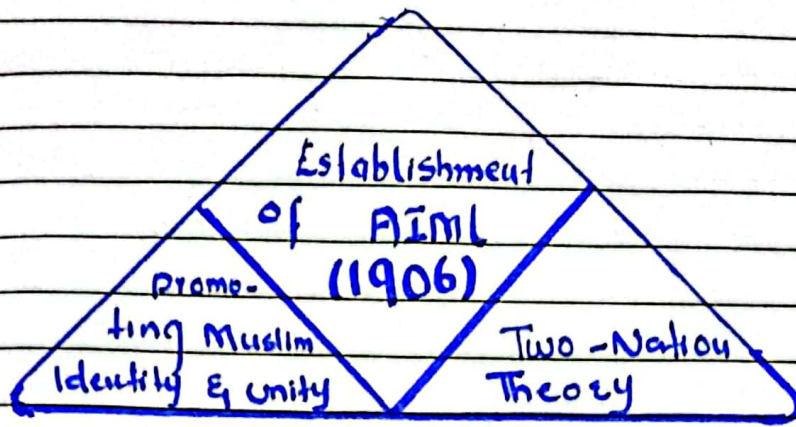 Establishment
of AIML
(1906)
Promo-
ting Muslim
Identity & unity
Two-Nation
Theory